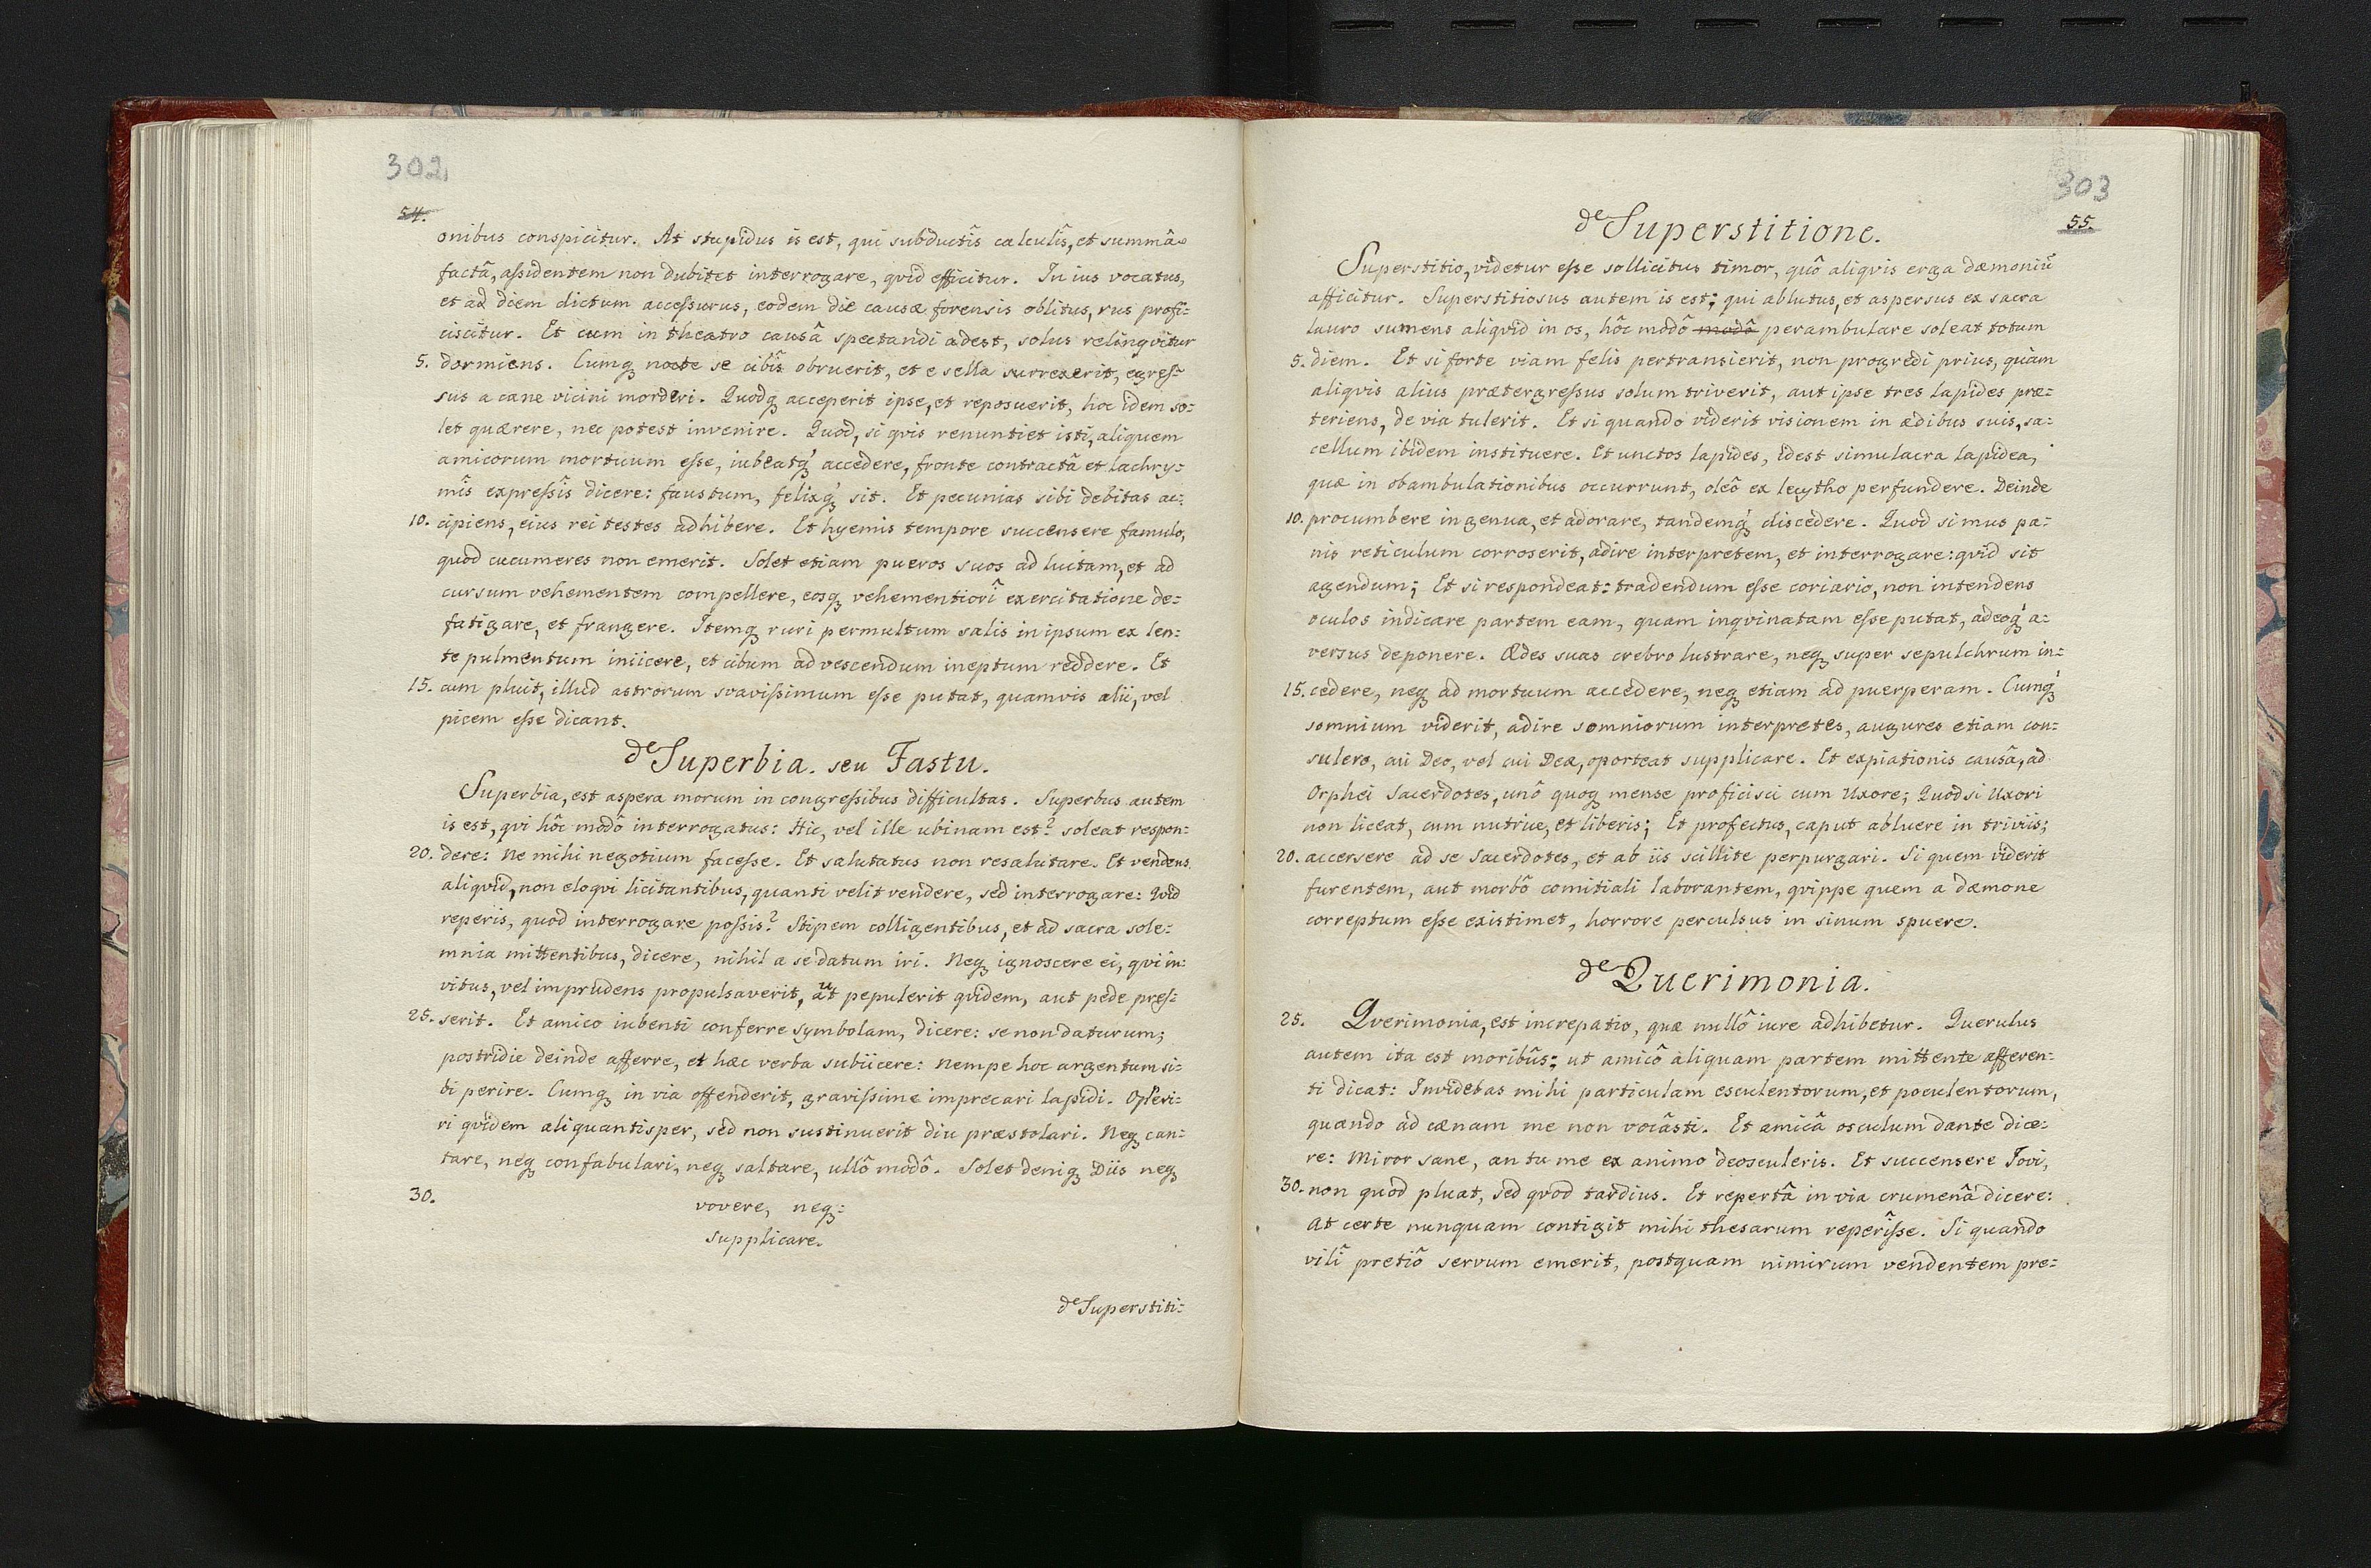 302
54.
onibus conspicitur. At stupidus is est, qui subductîs calculîs, et summâ
factâ, aſsidentem non dubitet interrogare, qvid efficitur. In ius vocatus,
et ad diem dictum acceſsurus, eodem die causæ forensis oblitus, rus profi:
ciscitur. Et cum in theatro causâ spectandi adest, solus relinqvitur
5. dormiens. Cumqꝫ nocte se cibîs obruerit, et e sella surrexerit, egreſ:
sus a cane vicini morderi. Quodqꝫ acceperit ipse, et reposuerit, hoc idem so:
let quærere, nec potest invenire. Quod, si qvis renuntiet isti, aliquem
amicorum mortuum eſse, iubeatqꝫ accedere, fronte contractâ et lachry:
mîs expreſsîs dicere: faustum, felixqꝫ sit. Et pecunias sibi debitas ac:
10. cipiens, eius rei testes adhibere. Et hyemis tempore succensere famulo,
quod cucumeres non emerit. Solet etiam pueros suos ad luctam, et ad
cursum vehementem compellere, eosqꝫ vehementiorî exercitatione de:
fatigare, et frangere. Itemqꝫ ruri permultum salis in ipsum ex len:
te pulmentum iniicere, et cibum ad vescendum ineptum reddere. Et
15. cum pluit, illud astrorum svaviſsimum eſse putat, quamvis alii, vel
picem eſse dicant.
de Superbia. seu Fastu.
Superbia, est aspera morum in congreſsibus difficultas. Superbus autem
is est, qvi hôc modô interrogatus: Hic, vel ille ubinam est? soleat respon:
20. dere: Ne mihi negotium faceſse. Et salutatus non resalutare. Et vendens
aliqvid, non eloqvi licitantibus, quanti velit vendere, sed interrogare: Qvid
reperis, quod interrogare poſsis? Stipem colligentibus, et ad sacra sole:
mnia mittentibus, dicere, nihil a se datum iri. Neqꝫ ignoscere ei, qvi in:
vitus, vel imprudens propulsaverit, aut pepulerit qvidem, aut pede preſ:
25. serit. Et amico iubenti conferre symbolam, dicere: se non daturum;
postridie deinde afferre, et hæc verba subiicere: Nempe hoc argentum si:
bi perire. Cumqꝫ in via offenderit, graviſsime imprecari lapidi. Opperi:
ri qvidem aliquantisper, sed non sustinuerit diu præstolari. Neqꝫ can:
tare, neqꝫ confabulari, neqꝫ saltare, ullô modô. Solet deniqꝫ Diis neqꝫ
30. vovere, neqꝫ:
supplicare.
de Superstiti:
303
55.
de Superstitione.
Superstitio, videtur eſse sollicitus timor, quô aliqvis erga dæmoniū
afficitur. Superstitiosus autem is est; qui ablutus, et aspersus ex sacra
lauro sumens aliqvid in os, hôc modô modô perambulare soleat totum
5. diem. Et si forte viam felis pertransierit, non progredi prius, quam
aliqvis alius prætergreſsus solum triverit, aut ipse tres lapides præ:
teriens, de via tulerit. Et si quando viderit visionem in ædibus suis, sa:
cellum ibidem instituere. Et unctos lapides, idest simulacra lapidea,
quæ in obambulationibus occurrunt, oleô ex lecytho perfundere. Deinde
10. procumbere in genua, et adorare, tandemqꝫ discedere. Quod si mus pa:
nis reticulum corroserit, adire interpretem, et interrogare: qvid sit
agendum; Et si respondeat: tradendum eſse coriario, non intendens
oculos indicare partem eam, quam inqvinatam eſse putat, adeoqꝫ a:
versus deponere. Ædes suas crebro lustrare, neqꝫ super sepulchrum in:
15. cedere, neqꝫ ad mortuum accedere, neqꝫ etiam ad puerperam. Cumqꝫ
somnium viderit, adire somniorum interpretes, augures etiam con:
sulere, cui Deo, vel cui Deæ, oporteat supplicare. Et expiationis causâ, ad
Orphei Sacerdotes, unô quoqꝫ mense proficisci cum Uxore; Quod si Uxori
non liceat, cum nutrice, et liberis; Et profectus, caput abluere in triviis;
20. accersere ad se sacerdotes, et ab iis scillite perpurgari. Si quem viderit
furentem, aut morbô comitiali laborantem, qvippe quem a dæmone
correptum eſse existimet, horrore perculsus in sinum spuere.
de Querimonia.
25. Qverimonia, est increpatio, quæ nullô iure adhibetur. Querulus
autem ita est moribûs; ut amicô aliquam partem mittente afferen:
ti dicat: Invidebas mihi particulam esculentorum, et poculentorum,
quando ad cænam me non vocâsti. Et amicâ osculum dante dice:
re: Miror sane, an tu me ex animo deosculeris. Et succensere Iovi,
30. non quod pluat, sed qvod tardius. Et repertâ in via crumenâ dicere:
At certe nunquam contigit mihi thesarum reperîſse. Si quando
vilî pretiô servum emerit, postquam nimirum vendentem pre: